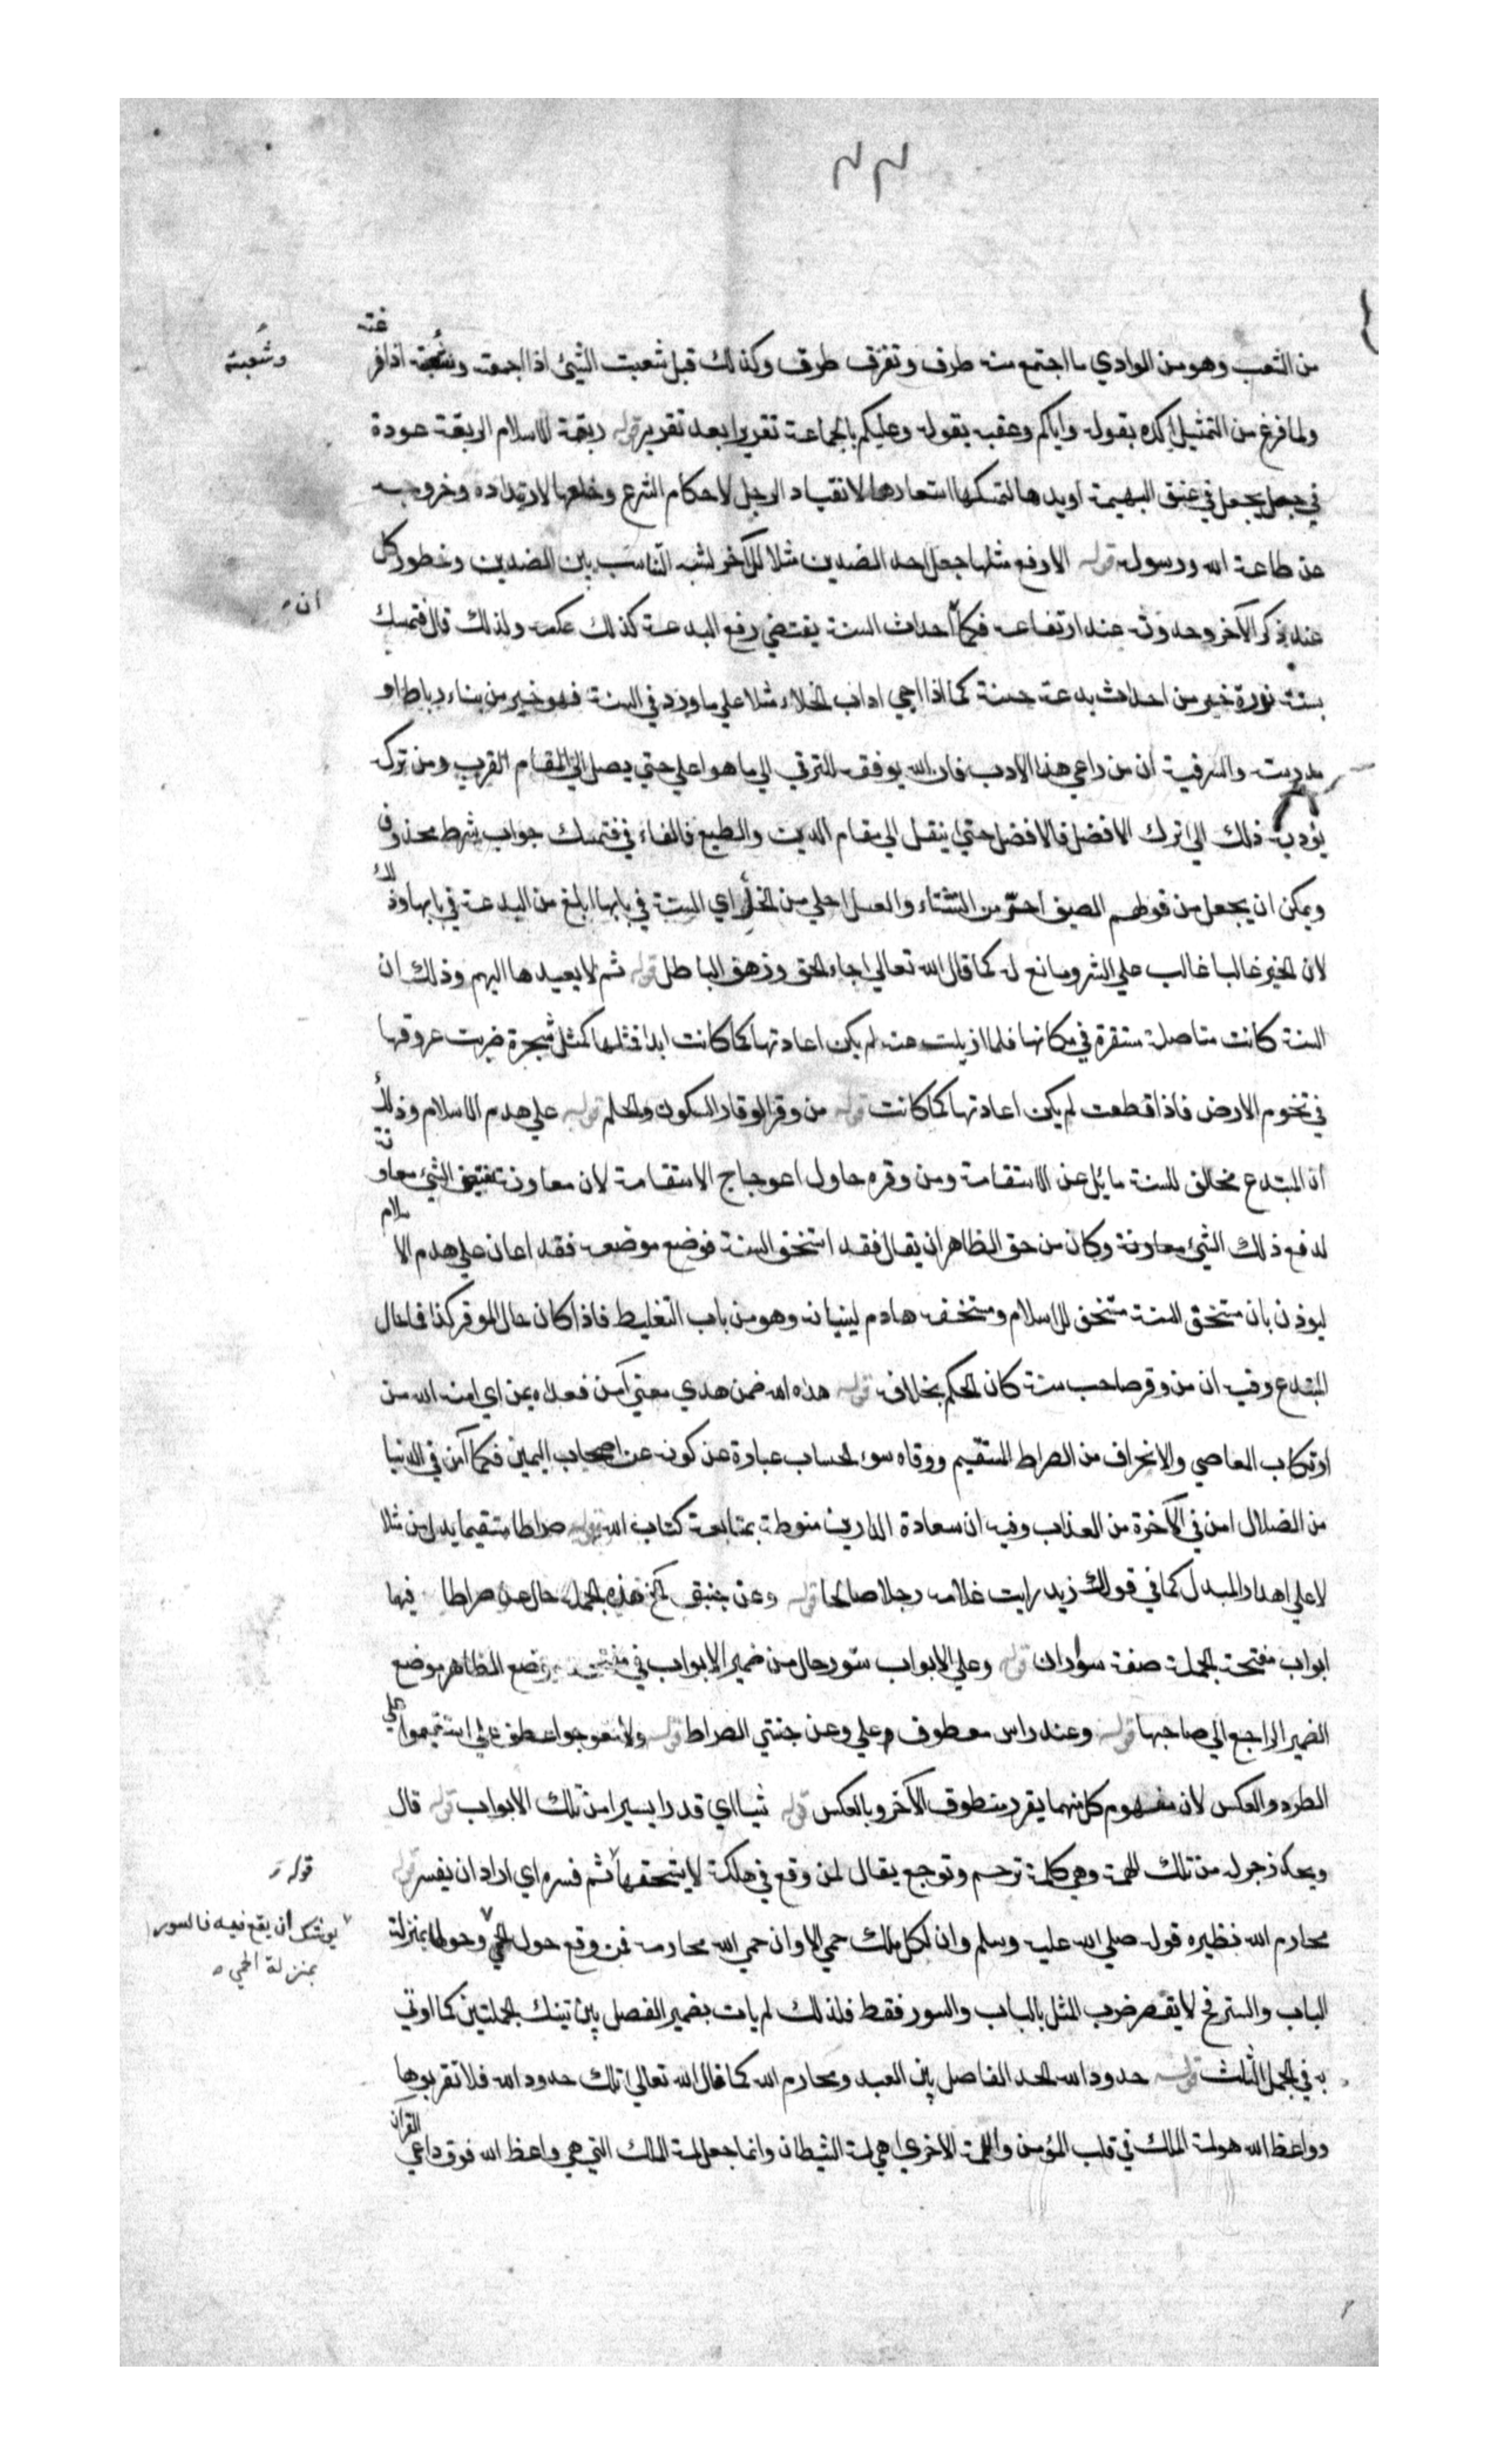 ٢٢
من الشعب وهو من الوادي ما اجتمع منه طرف وتفرق طرف وكذلك قيل شعبت الشيئ اذا جمعته وشعبته اذا فرغته
وشعبته
ولما فرغ من التمثيل اكده بقوله واياكم وعقبه بقوله وعليكم بالجماعة تقريرا بعد تقرير قوله ربقة الاسلام الربقة عروة
في حبل يجعل في عنق البهيمة او يدها لتمسكها استعارها لانقياد الرجل لاحكام الشرع وخلعها لارتداده وخروجه
عن طاعة الله ورسوله قوله الا رفع مثلها جعل احد الضدين مثلا للآخر لشبه التناسب بين الضدين وخطور كل
عند ذكر الآخر وحدوثه عند ارتفاعه فكما احداث السنة يقتضي رفع البدعة كذلك عكسه ولذلك قال فتمسك
ان
بسنة نورة خير من احداث بدعة حسنة كما اذا احيي اداب الخلاء مثلا علي ما ورد في السنة فهو خير من بناء رباط او
مدرسة والسر فيه ان من راعي هذا الادب فان الله يوفقه للترقي الي ما هو اعلي حتي يصل الي المقام القرب ومن تركه
يؤديه ذلك الي ترك الافضل فالافضل حتي ينتقل الي مقام الرين والطبع فالفاء في فتمسك جواب شرط محذوف
ويمكن ان يجعل من قولهم الصيف احر من الشتاء والعسل احلي من الخل اي السنة في بابها ابلغ من البدعة في بابها وذلك
لان الخير غالبا غالب علي الشر ومانع له كما قال الله تعالي جاء الحق وزهق الباطل قوله ثم لا يعيدها اليهم وذلك ان
السنة كانت متاصلة مستقرة في مكانها فلما ازيلت عنه لم يكن اعادتها كما كانت ابدا فمثلها كمثل شجرة ضربت عروقها
في تخوم الارض فاذا قطعت لم يكن اعادتها كما كانت قوله من وقر الوقار السكون والحلم قوله علي هدم الاسلام وذلك
ان المبتدع مخالف للسنة مائل عن الاستقامة ومن وقره حاول اعوجاج الاستقامة لان معاونة نقيض الشيئ معاونة
لدفع ذلك الشيئ معاونة وكان من حق الظاهر ان يقال فقد استخف السنة فوضع موضعه فقد اعان علي هدم الاسلام
ليوذن بان مستخف السنة مستخف للاسلام ومستخفه هادم لبنيانه وهو من باب التغليظ فاذا كان حال الموقر كذا فما حال
المبتدع وفيه ان من وقر صاحب سنة كان الحكم بخلافه قوله هذه الله ضمن هدي معني آمن فعداه بمن اي امنه الله من
ارتكاب المعاصي والانحراف من الصراط المستقيم ووقاه سوء الحساب عبارة عن كونه من اصحاب اليمين فكما آمن في الدنيا
من الضلال امن في الآخرة من العذاب وفيه ان سعادة الدارين منوطة بمتابعة كتاب الله قوله صراطا مستقيما بدل من مثلا
لا علي اهدار المبدل كما في قولك زيد رايت غلامه رجلا صالحا قوله وعن جنبتي الخ هذه الجملة حال عن صراطا فيها
ابواب مفتحة الجملة صفة سوران قوله وعلي الابواب ستور حال من ضمير الابواب في مفتحة بوضع الظاهر موضع
الضمير الراجع الي صاحبها قوله وعند راس معطوف علي وعن جنبتي الصراط قوله ولا تعوجوا عطف علي استقيموا علي
الطرد والعكس لان مفهوم كل منهما يقرر منطوق الآخر وبالعكس قوله شيئا اي قدرا يسيرا من تلك الابواب قوله قال
ويحك زجر له من تلك الهمة وهي كلمة ترحم وتوجع يقال لمن وقع في هلكة لا يستحقها ثم فسره اي اراد ان يفسر قوله
قوله
محارم الله فنظيره قوله صلي الله عليه وسلم وان لكل ملك حمي الا وان حمي الله محارمه فمن وقع حول الحمي وحولها بمنزلة
يوشك ان يقع فيه فالسور
بمنزلة الحمي
الباب والستر فح لا يقصر ضرب المثل بالباب والسور فقط فلذلك لم يات بضمير الفصل بين تينك الجملتين كما اوتي
به في الجمل الثلث قوله حدود الله الحد الفاصل بين العبد ومحارم الله كما قال الله تعالي تلك حدود الله فلا تقربوها
وواعظ الله هو لمة الملك في قلب المؤمن واللمة الاخري هي لمة الشيطان وانما جعل لمة الملك التي هي واعظ الله فوق داعي القرآن